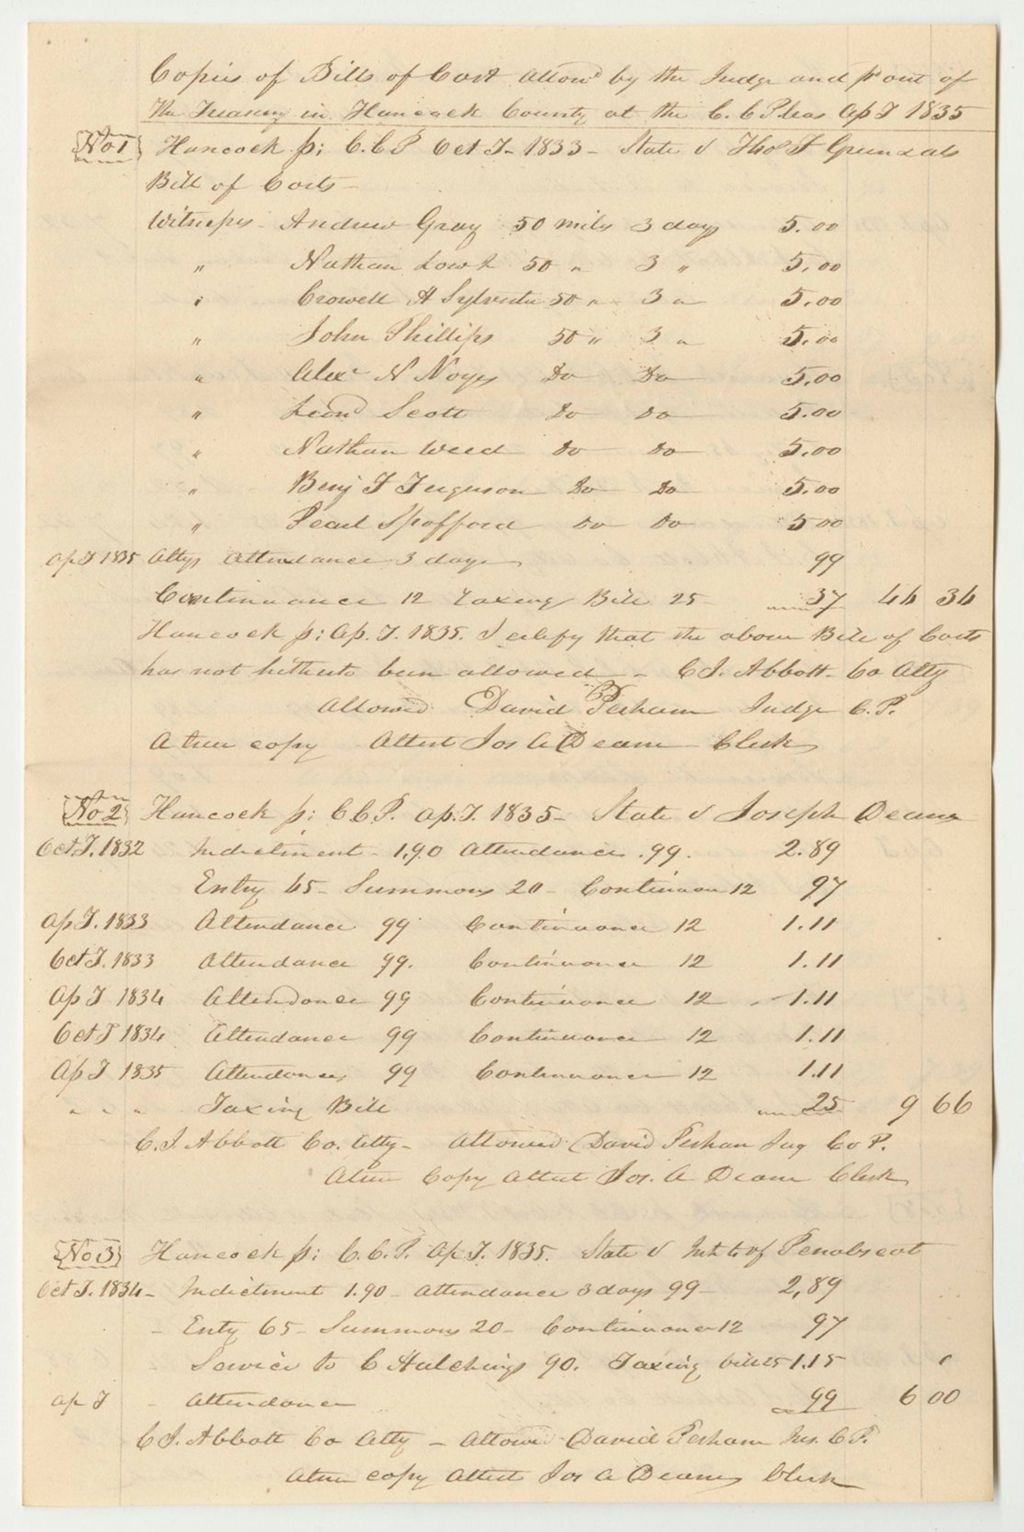 Copies of Bills of Cost allowd by the Judge and pd out of
the Treasury in Hancock County at the C. C Pleas Ap T 1835
No 1 Hancock ss: C.C.P. Oct T. 1833 - State v Thos T Grindal
Bill of Costs -
Witnesses - Andrew Gray 50 miles 3 days 5.00
" Nathan Low 50 " 3 " 5.00
" Crowell H Sylvester 50 " 3 " 5.00
" John Phillips 50 " 3 " 5.00
" Alexr N Noyes Do Do 5.00
" Leond Scott Do Do 5.00
" Nathan Weed Do Do 5.00
" Benj F Ferguson Do Do 5.00
" Pearl Spofford Do Do 5 00
Ap T 1835 Attys Attendance 3 days 99
Continuance 12 Taxing Bill 25 37 46 36
Hancock ss: Ap. T. 1835. I certify that the above Bill of Costs
has not hitherto been allowed - C. J. Abbott - Co Atty
Allowed David Perham Judge C. P.
A true copy Attest Jos A Deane Clerk
No 2 Hancock ss: C.C.P. Ap. T. 1835 - State v Joseph Deane
Oct T. 1832 Indictment - 1.90 Attendance .99. 2.89
Entry 65 - Summons 20 - Continuance 12 97
Ap T. 1833 Attendance 99 Continuance 12 1.11
Oct T. 1833 Attendance 99. Continuance 12 1.11
Ap T 1834 Attendance 99 Continuance 12 - 1.11
Oct T 1834 Attendance 99 Continuance 12 1.11
Ap T 1835 Attendance 99 Continuance 12 1.11
" " " Taxing Bill 25 9 66
C. J. Abbott Co. Atty - Allowed David Perham Jug Co P.
A true Copy Attest Jos. A Deane Clerk
No 3 Hancock ss: C. C. P. Ap. T. 1835. State v Inhts of Penobscot
Oct T. 1834 - Indictment 1.90 - Attendance 3 days 99 - 2,89
- Enty 65 - Summons 20 - Continuance 12 97
Service to C Hutchings 90. Taxing bill 25 1.15
Ap T - Attendance 99 6 00
C J. Abbott Co Atty - Allowed David Perham Jus. C. P.
A true copy Attest Jos A Deane Clerk